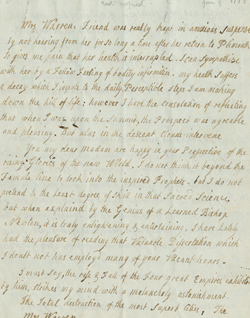 My Warren Friend was really kept in anxious suspense
by not hearing from her for so long a time after her return to Plimouth
To give me pain that her health is interrupted. I can sympathise
with her by a Fellow Feeling of bodily infirmities. my health suffers
a decay which I regard the daily perceptible steps I am making
down the hill of life; however I have the consolation of reflecting
that when I was upon the Summit, the Prospect was agreeable
and pleasing. Also in the descent clouds intervene.
You my dear Madam are happy in your Perspective of the
rising Glories of the new World. I do not think it beyond the
Female line to look into the inspired Prophets. but I do not
pretend to the least degree of Skill in that Sacred Science.
but when explained by the Genius of a learned Bishop
Newton, it is truly enlightening & entertaining. I have lately
had the pleasure of reading that Valuable Dissertation which
I doubt not has employ'd many of your Vacant hours.
I must say, the rise & Fall of the Four great Empires exhibited
by him, strikes my mind with a melancholy astonishment.
The Total destruction of the most Superb Cities, The